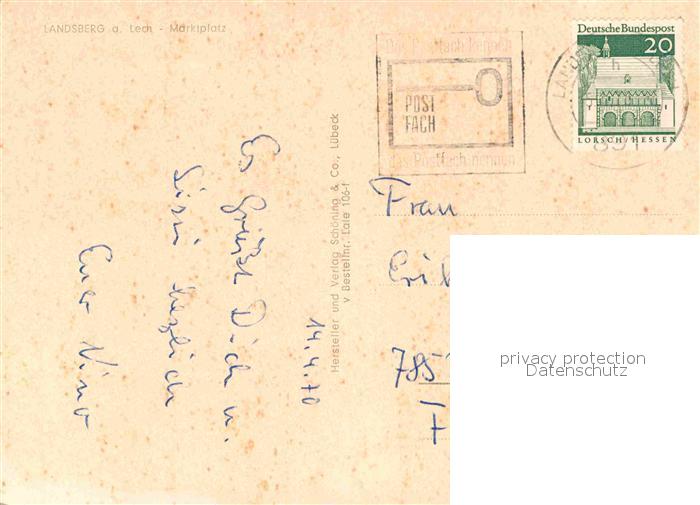 LANDSBERG a. Lech - Marktplatz
Das Postfach
POST
FACH
das Postfach nennen
Deutsche Bundespost
20
LORSCH/HESSEN
Hersteller und Verlag Schöning & Co., Lübeck
v Bestellnr. Laie 106-f
14.4.70
Es grüßt Dich u.
Sissi herzlich
Euer Nino
Frau
785
F
privacy protection
Datenschutz